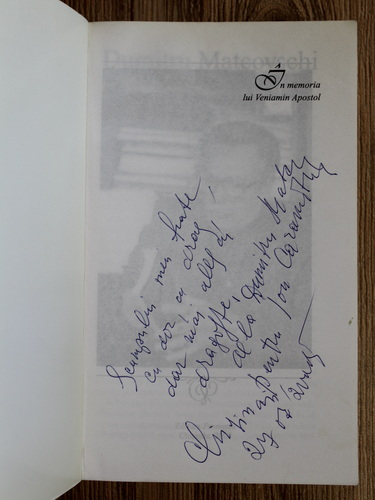 Dumitru Matcovschi
În memoria
lui Veniamin Apostol
Scumpului meu frate
cu dor, cu drag,
dar mai ales cu
dragoste,
de la Dumitru Matcovschi
pentru Ion